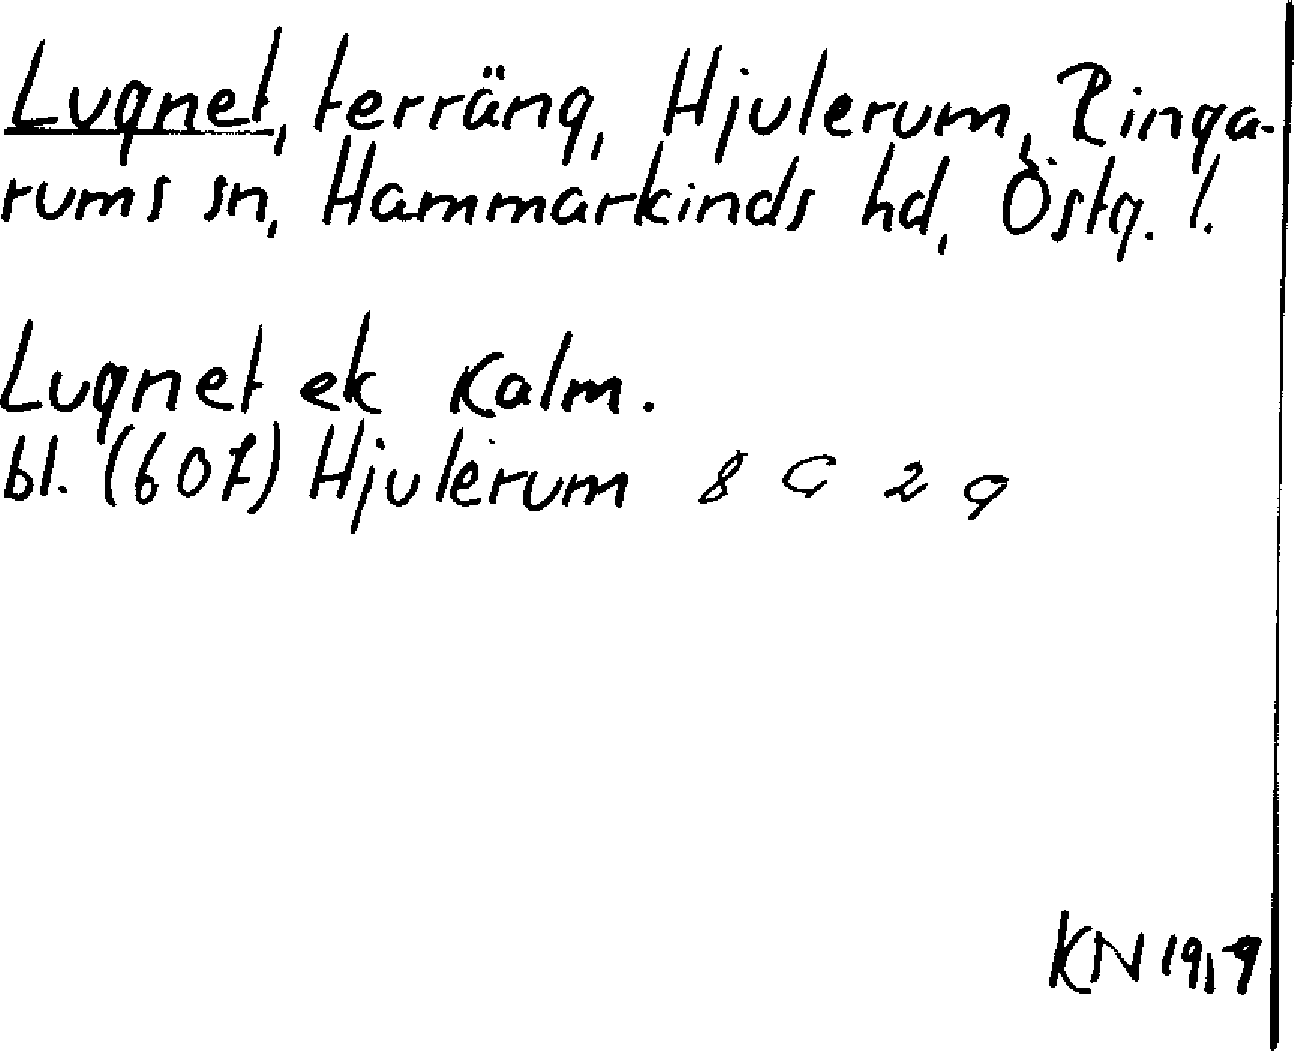 Lugnet, terräng, Hjulerum, Ringa-
rums sn, Hammarkinds hd, Östg. l.
Lugnet ek Kalm.
bl. (607) Hjulerum 8 G 2 g
KN 1919